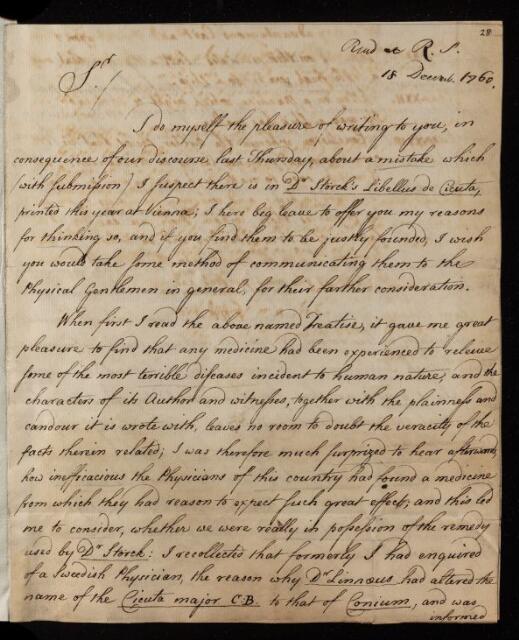 28
Read at R. S.
18 Decemb. 1760.
Sr.
I do myself the pleasure of writing to you, in
consequence of our discourse last Thursday, about a mistake which
(with submission) I suspect there is in Dr Storck's Libellus de Cicuta,
printed this year at Vienna; I here beg leave to offer you my reasons
for thinking so, and if you find them to be justly founded, I wish
you would take some method of communicating them to the
Physical Gentlemen in general, for their farther consideration.
When first I read the above named Treatise, it gave me great
pleasure to find that any medicine had been experienced to relieve
some of the most terrible diseases incident to human nature, and the
characters of its Author and witnesses, together with the plainness and
candour it is wrote with, leaves no room to doubt the veracity of the
facts therein related; I was therefore much surprized to hear afterwards
how inefficacious the Physicians of this country had found a medicine
from which they had reason to expect such great effects, and this led
me to consider, whether we were really in possession of the remedy
used by Dr Storck: I recollected that formerly I had enquired
of a Swedish Physician, the reason why Dr Linnæus had altered the
name of the Cicuta major C.B. to that of Conium, and was
informed